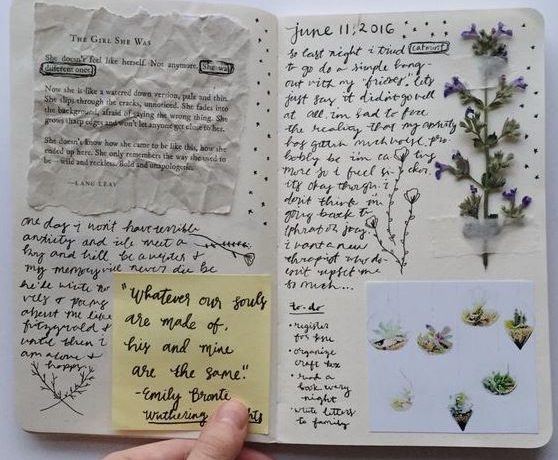 THE GIRL SHE WAS
She doesn't feel like herself. Not anymore. She was
different once.
Now she is like a watered down version, pale and thin.
She slips through the cracks, unnoticed. She fades into
the background, afraid of saying the wrong thing. She
grows sharp edges and won't let anyone get close to her.
She doesn't know how she came to be like this, how she
ended up here. She only remembers the way she used to
be—wild and reckless. Bold and unapologetic.
—LANG LEAV
one day i won't have terrible
anxiety and i'll meet a
boy and he'll be a writer &
my memory will never die bc
he'll write no
vels & poems
about me like
fitzgerald &
until then i
am alone &
happy
"Whatever our souls
are made of,
his and mine
are the same."
-Emily Bronte
Wuthering
june 11, 2016
so last night i tried
to go do a simple hang-
out with my "friends". lets
just say it didn't go well
at all. im sad to face
the reality that my anxiety
has gotten much worse, pro-
bably bc im
more so i feel
its okay though i
don't think im
going back to
i want a new
therapist who do-
esn't upset me
so much...
to-do
• register
for
• organize
craft box
• read a
book every
night
• write letters
to family